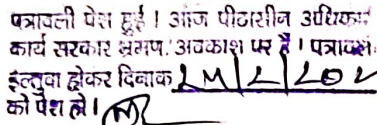 पत्रावली पेश हुई । आज पीठासीन अधिकारी
कार्य सरकार भ्रमण/अवकाश पर है । पत्रावली
इल्तुवा होकर दिनांक
को पेश हो ।